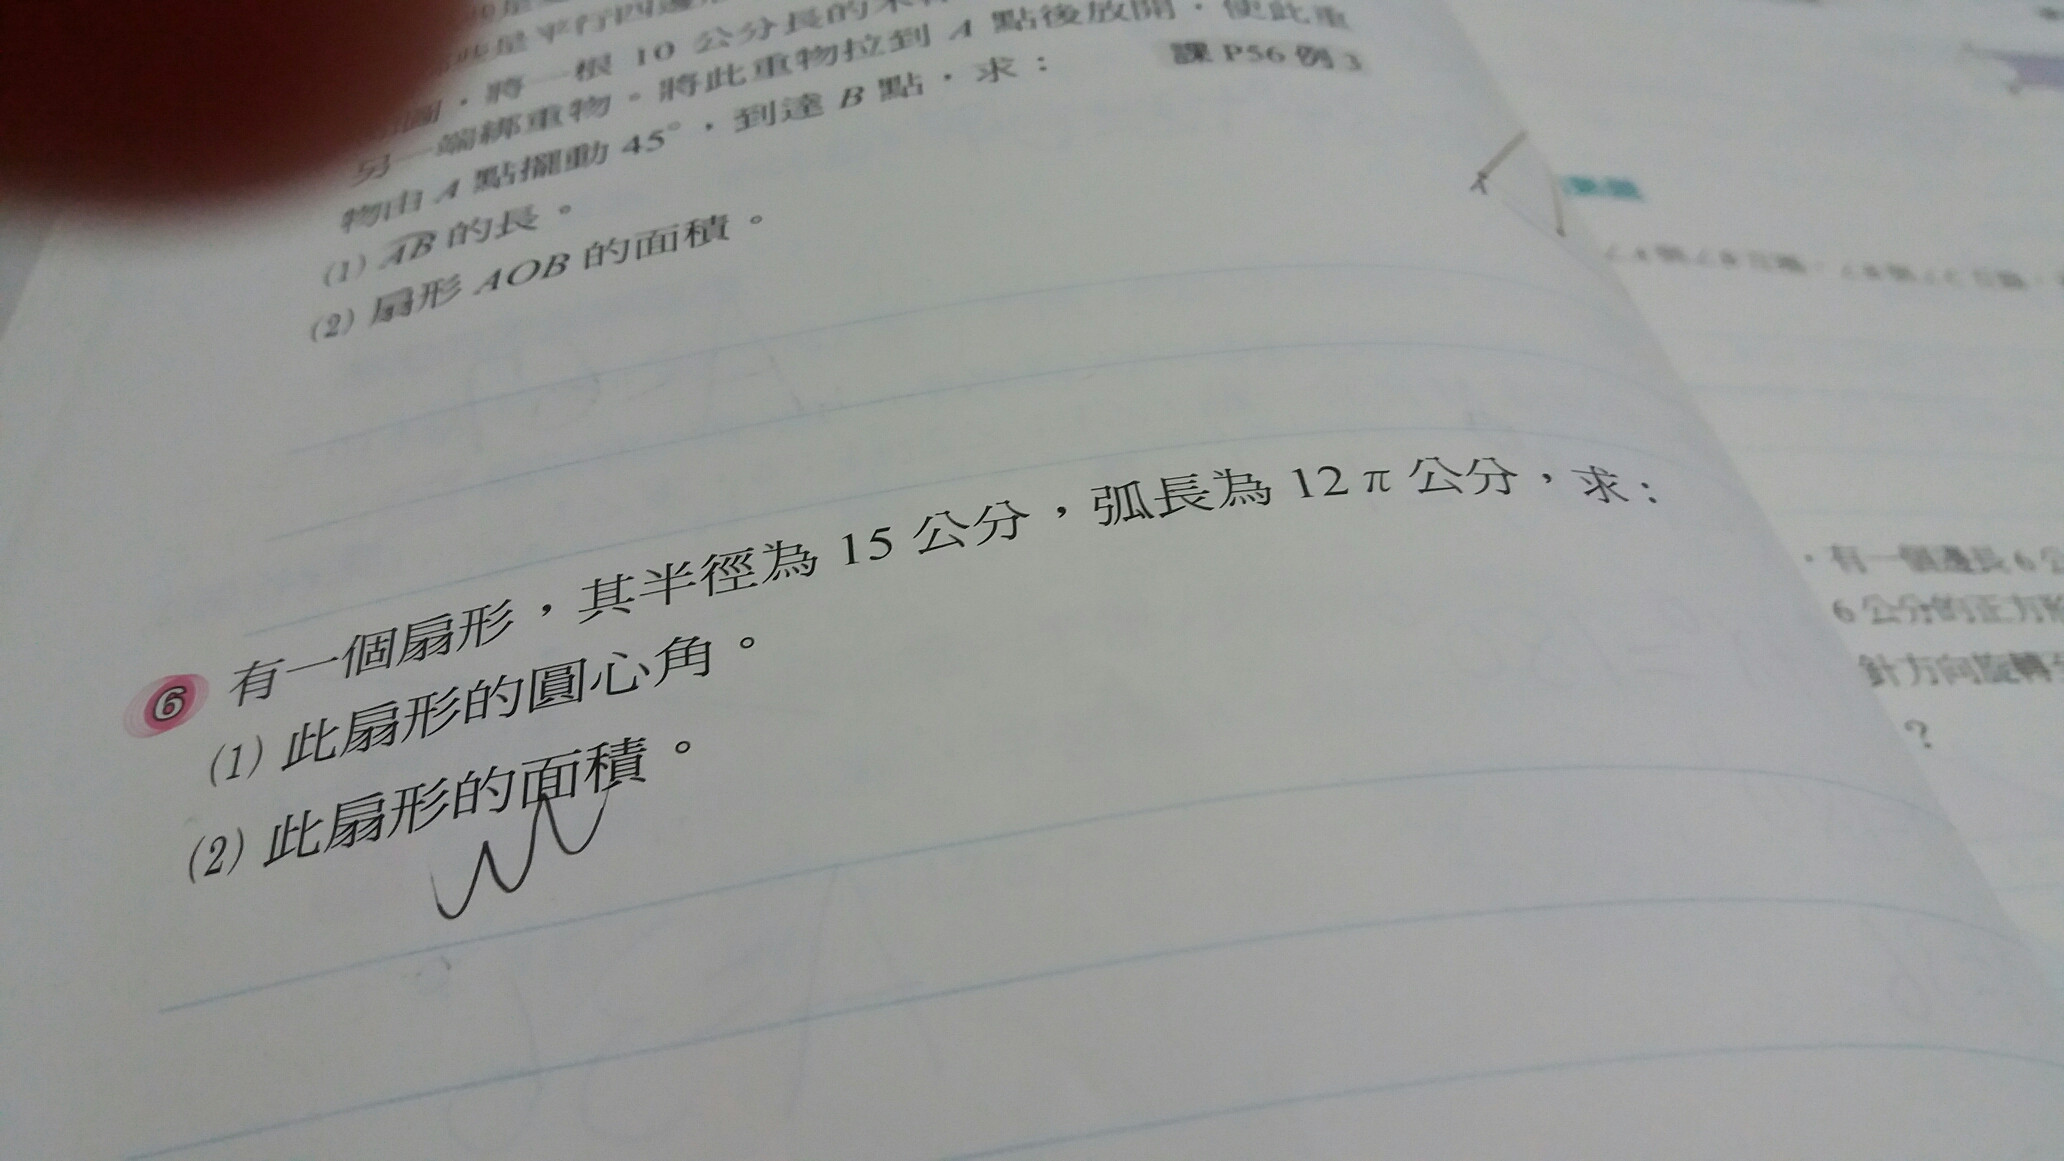 是平行四邊形
圖，將一根 10 公分長的木
另一端綁重物。將此重物拉到 A 點後放開，使此重
物由 A 點擺動 45°，到達 B 點，求：
課 P56 例 3
(1) AB 的長。
(2) 扇形 AOB 的面積。
6 有一個扇形，其半徑為 15 公分，弧長為 12π 公分，求：
(1) 此扇形的圓心角。
(2) 此扇形的面積。
，有一個邊長 6 公
6 公分的正方形
針方向旋轉至
？